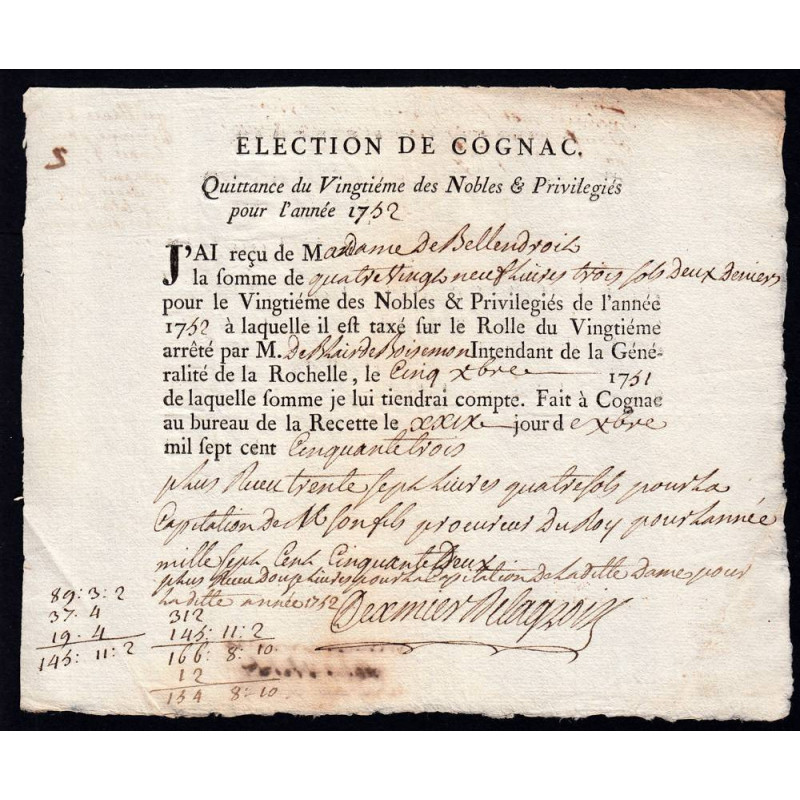 2
ELECTION DE COGNAC.
Quittance du Vingtiéme des Nobles & Privilegiés
pour l'année 1752
J'AI reçu de Madame de Bellendroit
la somme de quatre vingt neuf livres trois sols deux deniers
pour le Vingtiéme des Nobles & Privilegiés de l'année
1752 à laquelle il est taxé sur le Rolle du Vingtiéme
arrêté par M. De Blair de Boisemon Intendant de la Géné-
ralité de la Rochelle, le Cinq xbre 1751
de laquelle somme je lui tiendrai compte. Fait à Cognac
au bureau de la Recette le xxix jour de xbre
mil sept cent Cinquante trois
plus Receu trente sept livres quatre sols pour La
Capitation de M son fils procureur Du Roy pour Lannée
mille Sept Cent Cinquante Deux
plus Receu pour La Capitation de Laditte Dame pour
Laditte année 1752
89: 3: 2
37. 4
19. 4
145: 11: 2
312
145: 11: 2
166: 8: 10.
12
154 8: 10